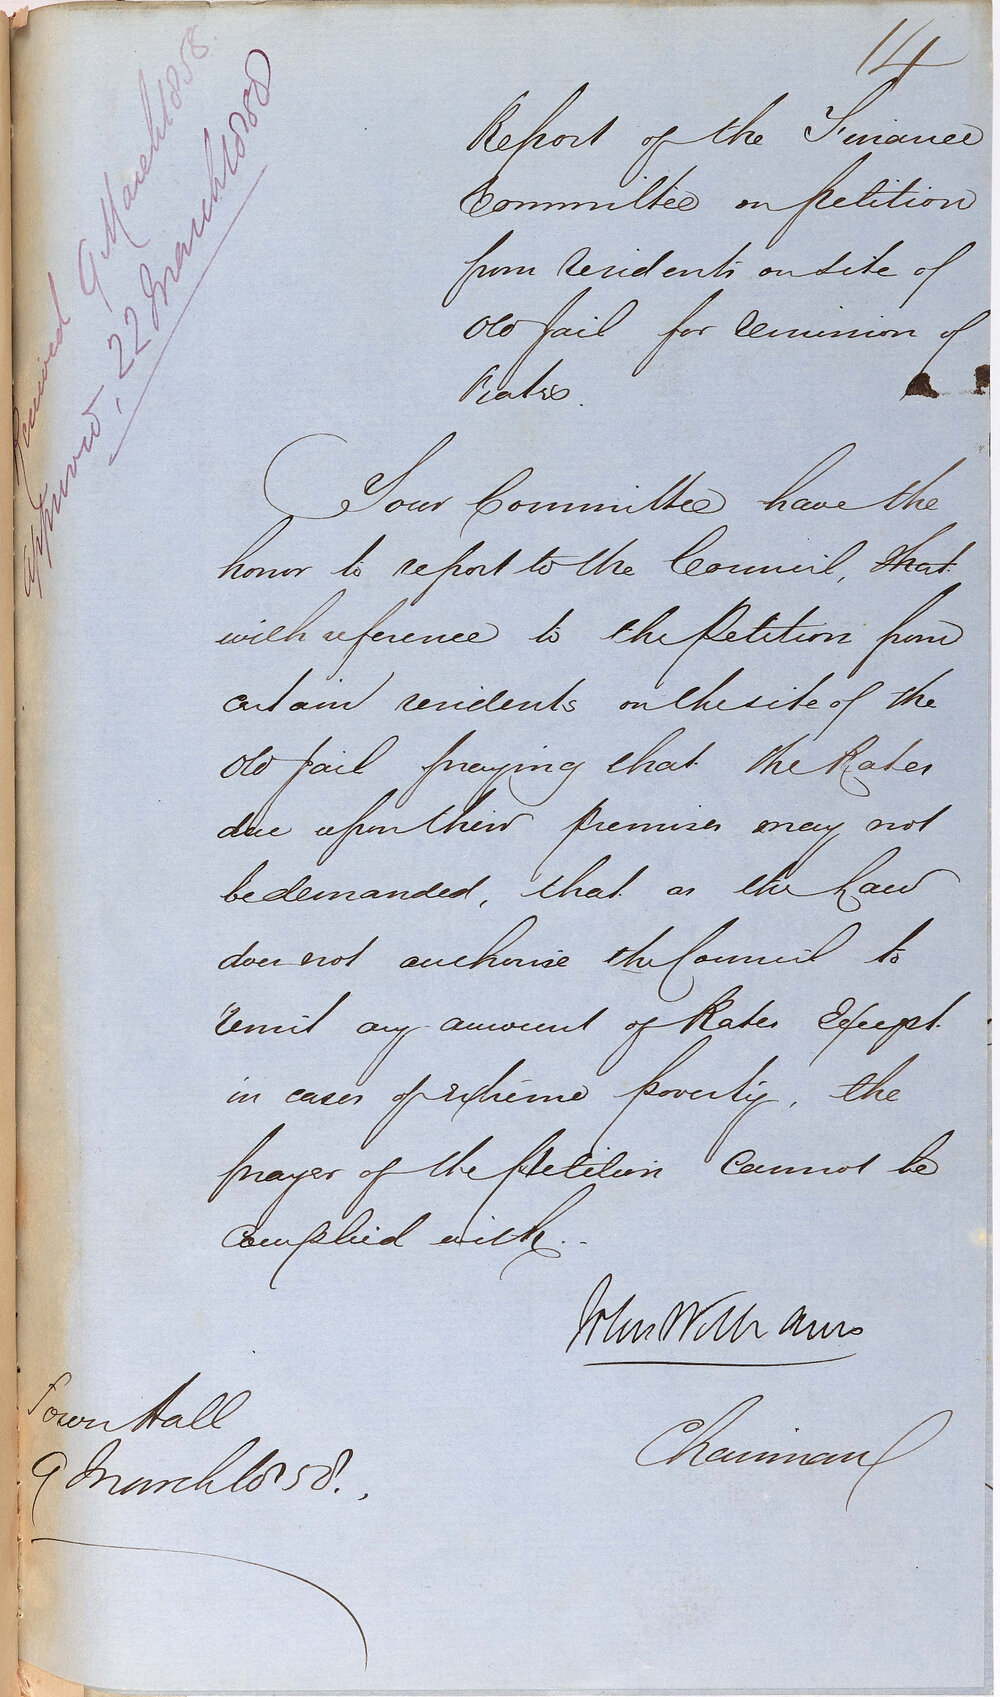 14
Received 9 March 1858
approved, 22 March 1858
Report of the Finance
Committee on petition
from residents on site of
Old Jail for remission of
Rates.
Your Committee have the
honor to report to the Council, that
with reference to the Petition from
certain residents on the site of the
Old Jail praying that the Rates
due upon their premises may not
be demanded, that as the Law
does not authorise the Council to
remit any amount of Rates Except
in cases of extreme poverty, the
prayer of the Petition cannot be
complied with.
John Williams
Chairman
Town Hall
9 March 1858.